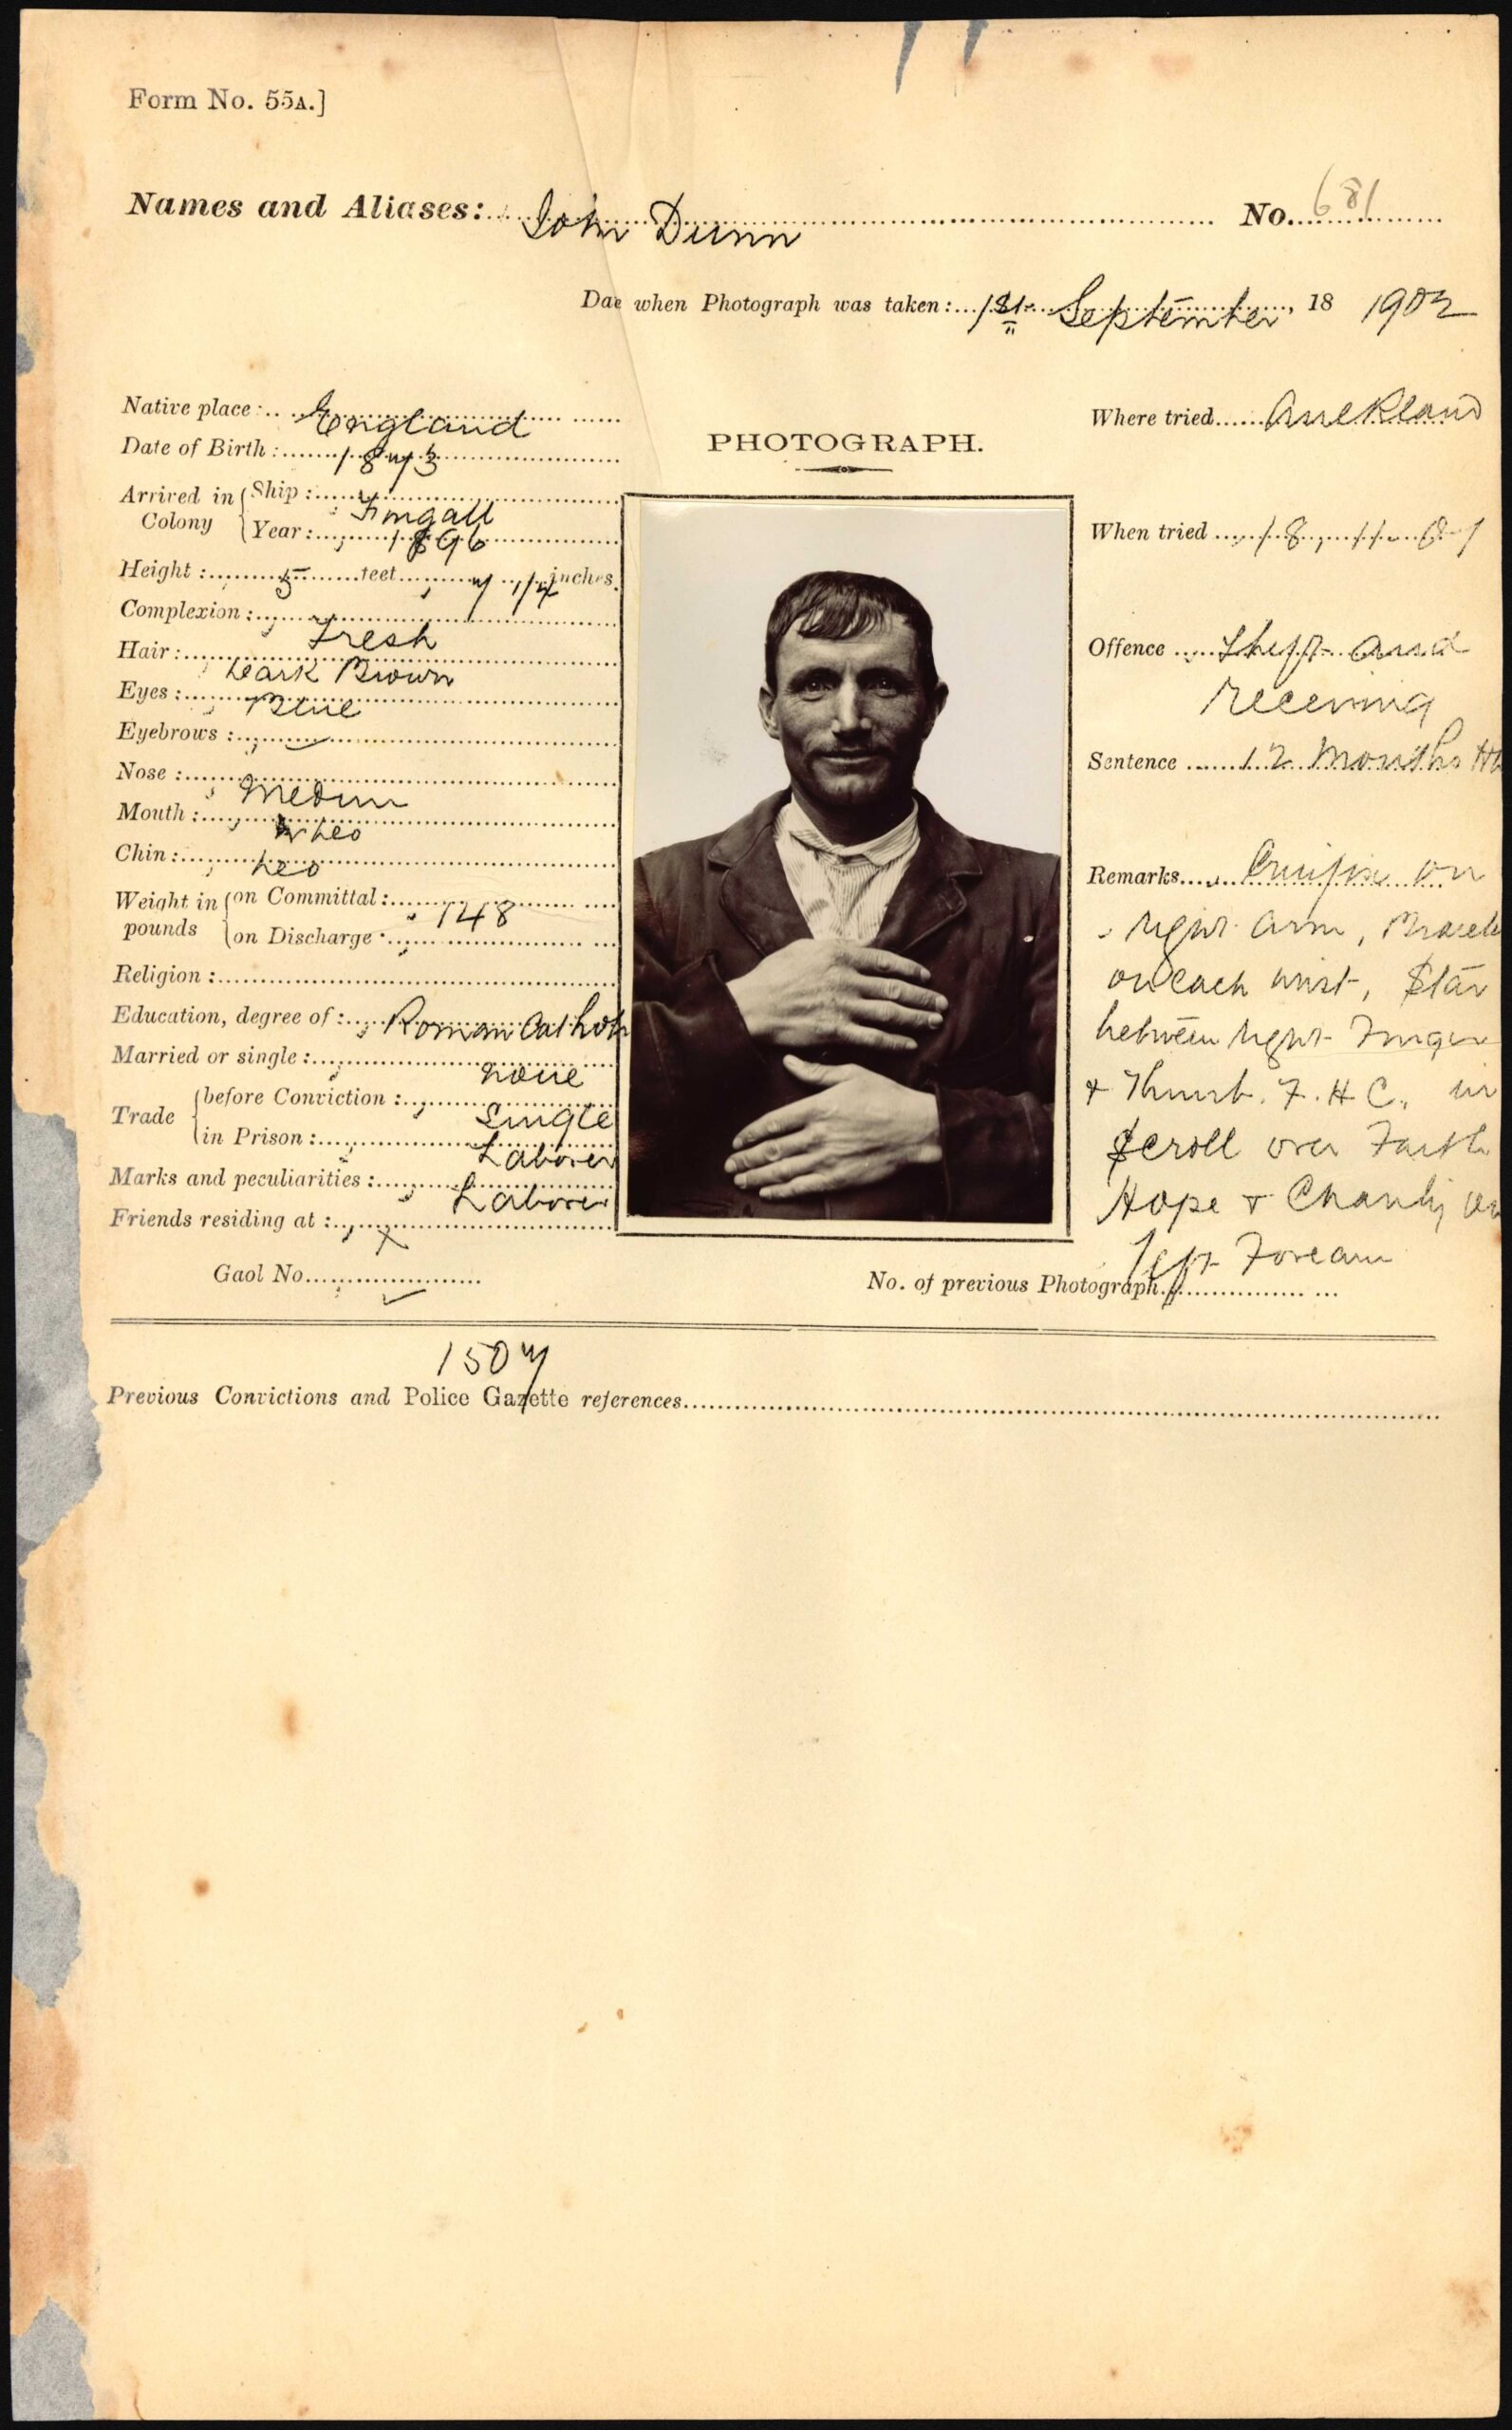 Form No. 55A.]
Names and Aliases: John Dunn No. 681
Dae when Photograph was taken: 1st September, 18 1902
Native place: England
Date of Birth: 1873
Arrived in Colony Ship: Fingall
Year: 1896
Height: 5 feet 7 1/4 inches.
Complexion: Fresh
Hair: Dark Brown
Eyes: Blue
Eyebrows:
Nose: Medium
Mouth:
Chin:
Weight in pounds on Committal: 148
on Discharge
Religion:
Education, degree of: Roman Cathol
Married or single: none
Trade before Conviction: Single
in Prison: Laborer
Marks and peculiarities: Laborer
Friends residing at: x
Gaol No.
1507
PHOTOGRAPH.
Where tried Auckland
When tried 18, 11. 01
Offence Theft and
receiving
Sentence 12 Months
Remarks Crucifix on
right arm,
on each wrist, Star
between right Finger
& Thumb. F. H. C. in
Scroll over Faith
Hope & Charity on
left Forearm
No. of previous Photograph
Previous Convictions and Police Gazette references